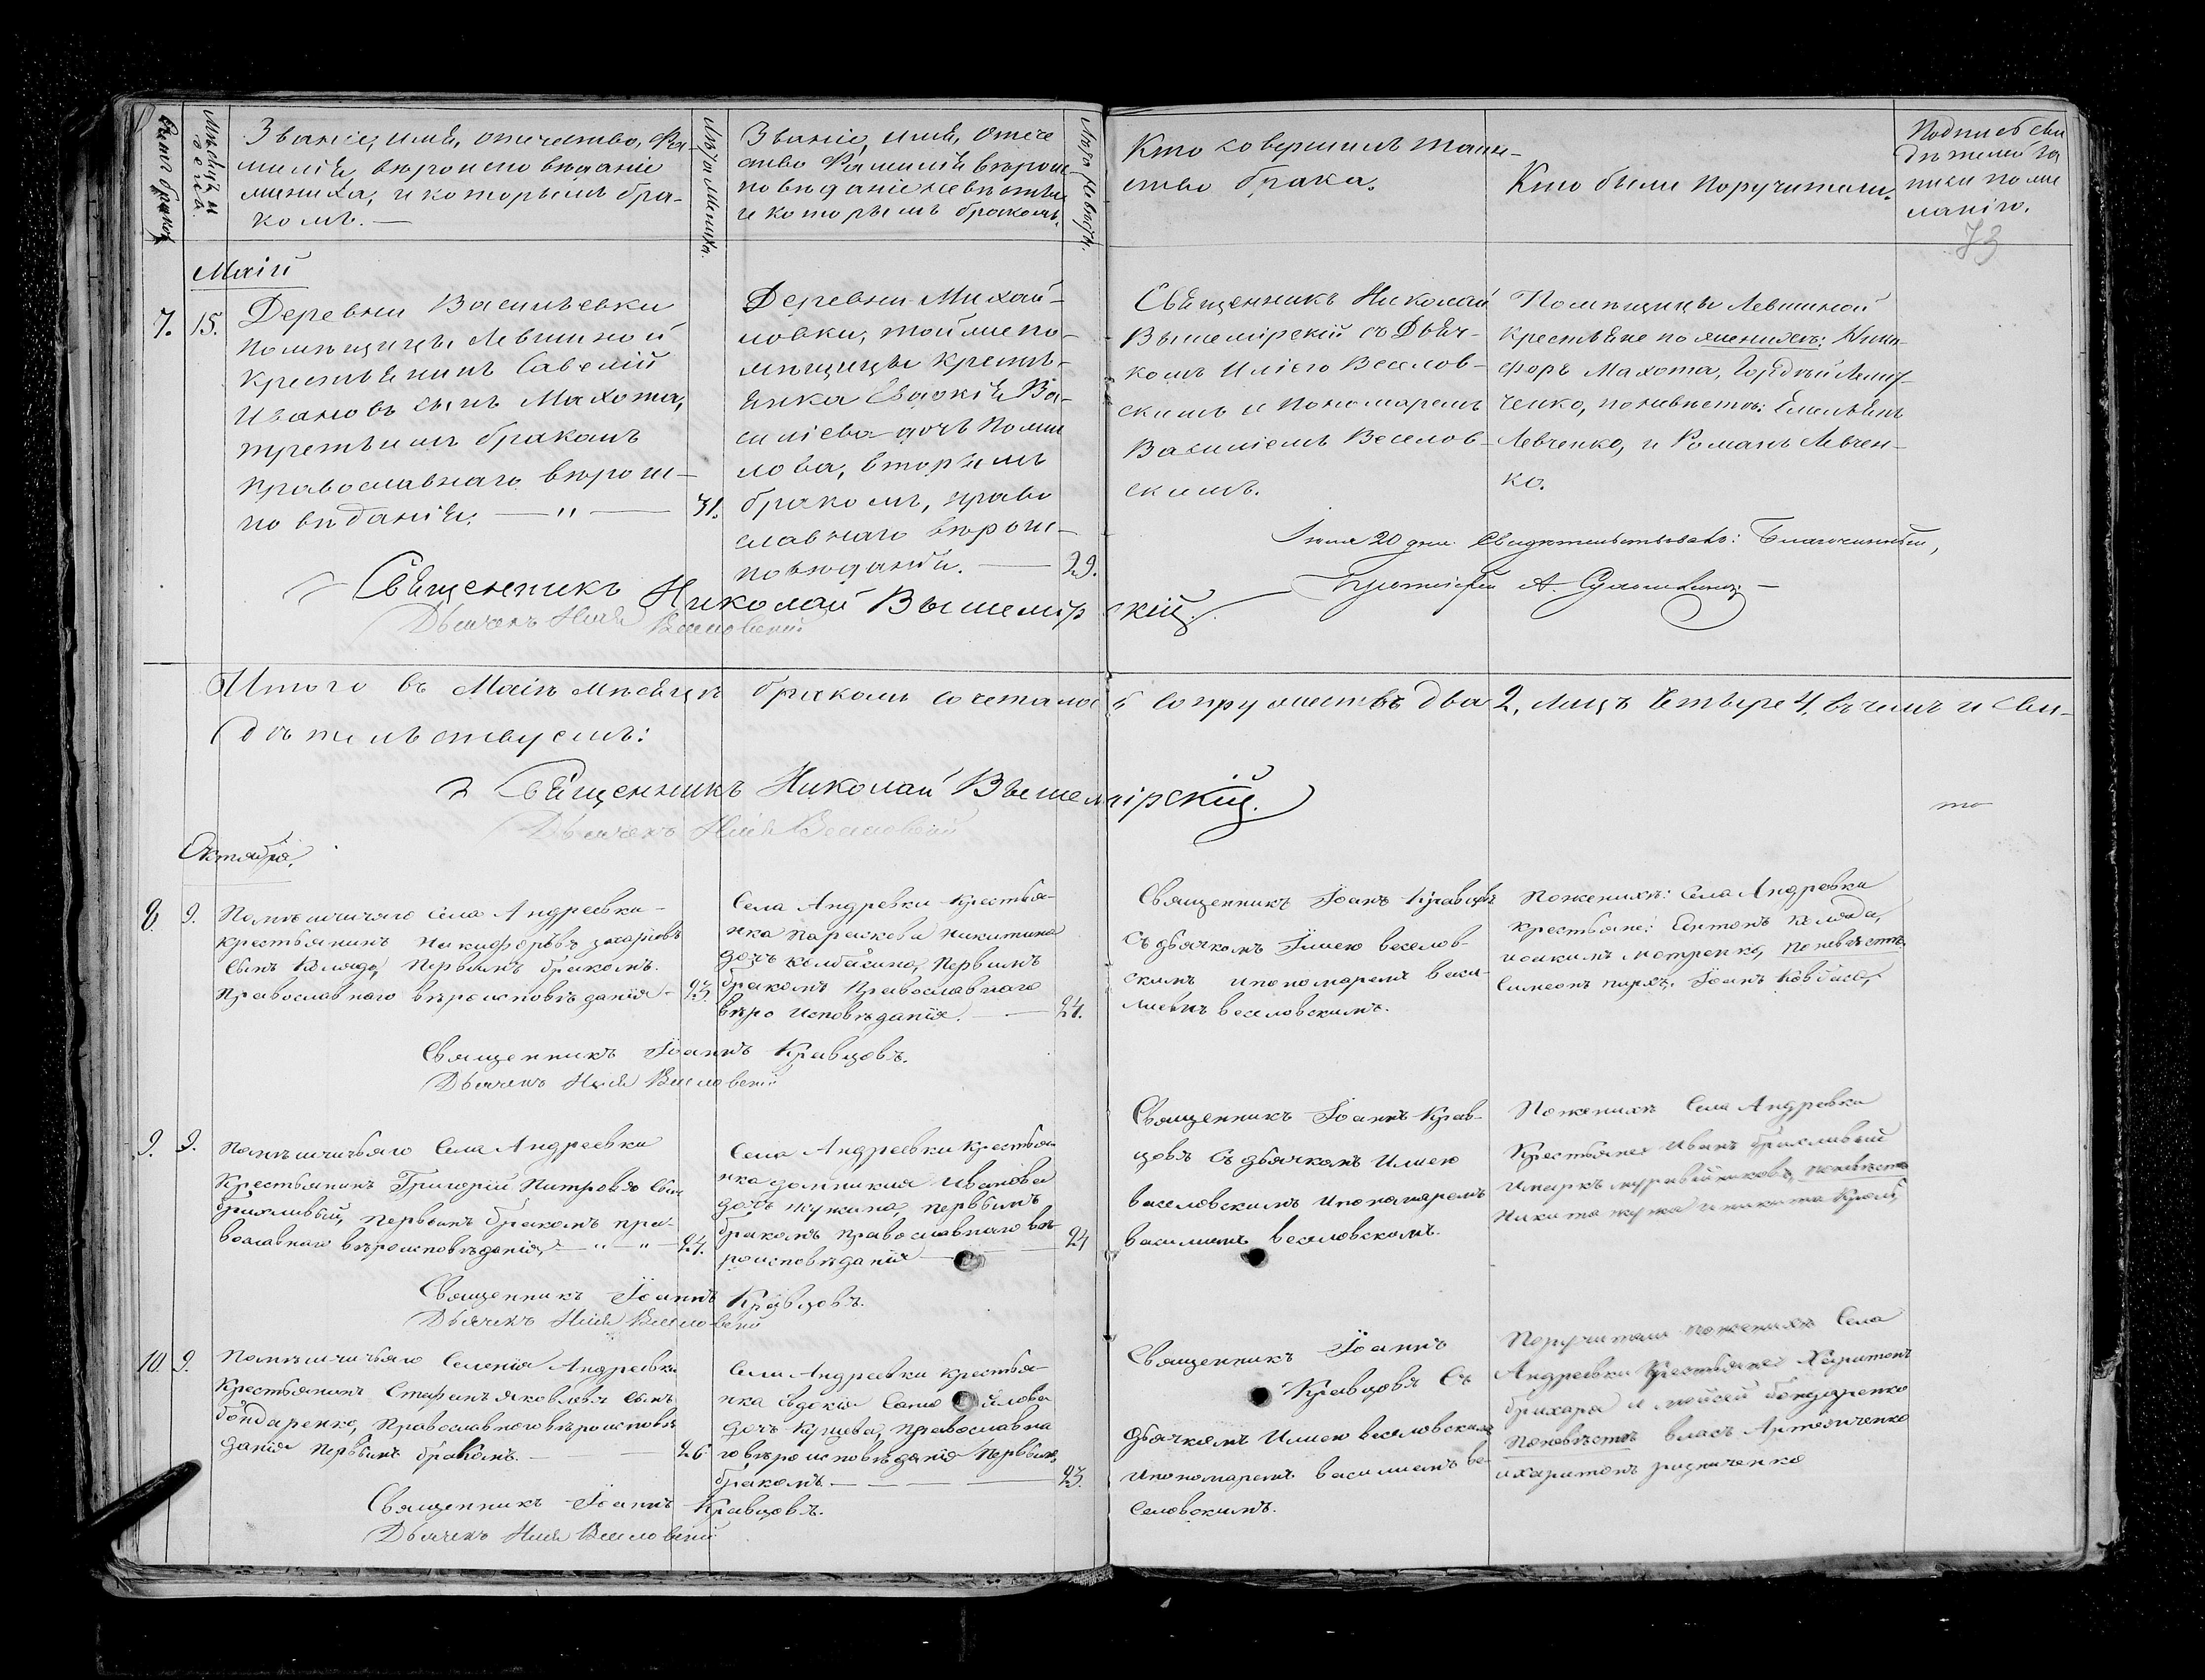 Счетъ браковъ
Мѣсяцъ и день
Званіе, имя, отчество, Фа-
милія, вѣроисповѣданіе
жениха, и которымъ бра-
комъ. —
Лѣта Жениха.
Званіе, имя, отече
ство Фамилія вѣроис
повѣданіе невѣсты
и которымъ бракомъ.
Лѣта Невѣсты.
Кто совершилъ таин-
ство брака.
Кто были поручители.
Подпись сви
дѣтелей за
писи по же
ланію.
73
Маій
7. 15.
Деревни Васильевки
помѣщицы Левшиной
крестьянинъ Савелій
Ивановъ сынъ Махота,
третьимъ бракомъ
Православнаго вѣроис-
повѣданія. — " — 31.
Деревни Михай-
ловки, той же по-
мѣщицы кресть-
янка Евдокія Ва-
силіева дочь
лова, вторымъ
бракомъ, право
славнаго вѣроис-
повѣданія. — 29.
Священникъ Николай
Вышемірскій съ Дьяч-
комъ Иліею Веселов-
скимъ и Пономаремъ
Василіемъ Веселов-
скимъ.
Помѣщицы Левшиной
крестьяне по женихѣ: Ники-
форъ Махота,
ченко, по невѣстѣ: Емельянъ
Левченко, и Романъ Левчен-
ко.
Іюля 20 дня Свидѣтельствовалъ: Благочинный,
Протоіерей А.
Священникъ Николай Вышемірскій.
Дьячекъ Илія Веселовскій
Итого въ Маіѣ мѣсяцѣ бракомъ сочеталось супружествъ два 2, лицъ четыре 4, въ чемъ и сви-
дѣтельствуемъ:
Священникъ Николай Вышемірскій.
Дьячекъ Илія Веселовскій
Октябрь.
8. 9.
Помѣщичяго села Андреевки
крестьянинъ Никифоръ Захаровъ
сынъ Коляда, первымъ бракомъ.
Православнаго вѣроисповѣданія — 23.
Села Андреевки крестья-
нка Параскева Никитина
дочь Колбасина, первымъ
бракомъ Православнаго
вѣро исповѣданія. — 21.
Священникъ Іоанъ Кравцовъ
съ дьячкомъ Иліею Веселов-
скимъ и пономаремъ Васи-
лиемъ Веселовскимъ.
По женихѣ: села Андреевки
крестьяне: Антонъ Коляда,
и Іоакимъ Мотренко, по невѣстѣ
Симеонъ Іоанъ Ковбаса,
Священникъ Іоаннъ Кравцовъ.
Дьячекъ Илія Веселовскій
9. 9.
Помѣщичьяго Села Андреевки
крестьянинъ Григорій Питровъ сын
Брихливый, первымъ бракомъ пра-
вославнаго вѣроисповѣданія, — " — " — 24.
Села Андреевки крестья-
нка Домникия Иванова
дочь Жукина, первымъ
бракомъ православнаго вѣ
роисповѣданія — 21
Священникъ Іоаннъ Крав-
цовъ съ дьячкомъ Илиею
Веселовскимъ и пономаремъ
Василиемъ Веселовскимъ.
По женихѣ Села Андреевки
крестьяне Иванъ Брихливый
и Маркъ Муравйниковъ, по невѣстѣ
Никита Жука и Никита Кроль,
Священникъ Іоаннъ Кравцовъ.
Дьячекъ Илія Веселовскій
10. 9.
Помѣщичьяго Селенія Андреевки
крестьянинъ Стефанъ Яковлевъ сынъ
Бондаренко, православнаго вѣроисповѣ
данія первымъ бракомъ. — 26
Села Андреевки крестья-
нка Евдокія Само йлова
дочь Куцева, православна
го вѣроисповѣданія первымъ
бракомъ. — 23.
Священникъ Іоаннъ
Кравцовъ съ
дьячкомъ Илиею Веселовскимъ
и пономаремъ Василиемъ Ве-
селовскимъ.
Поручители по женихѣ Села
Андреевки крестьяне Харитонъ
Брихара и Мойсей Бондаренко
по невѣстѣ Власъ Артемченко
и Харитонъ Родниченко
Священникъ Іоаннъ Кравцовъ.
Дьячекъ Илія Веселовскій